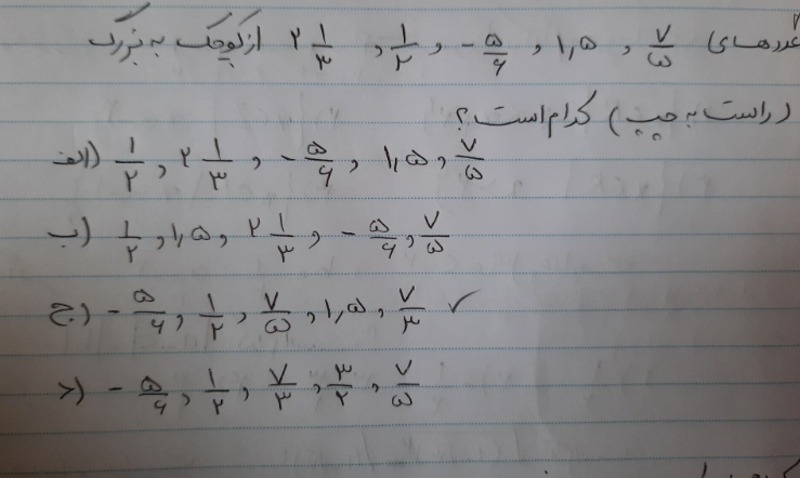 عددهای ۷/۵ , ۱٫۵ , -۵/۶ , ۱/۲ , ۲ ۱/۳ از کوچک به بزرگ
(راست به چپ) کدام است؟
الف) ۱/۲ , ۲ ۱/۳ , -۵/۶ , ۱٫۵ , ۷/۵
ب) ۱/۲ , ۱٫۵ , ۲ ۱/۳ , -۵/۶ , ۷/۵
ج) -۵/۶ , ۱/۲ , ۷/۵ , ۱٫۵ , ۷/۳ ✓
د) -۵/۶ , ۱/۲ , ۷/۳ , ۳/۲ , ۷/۵